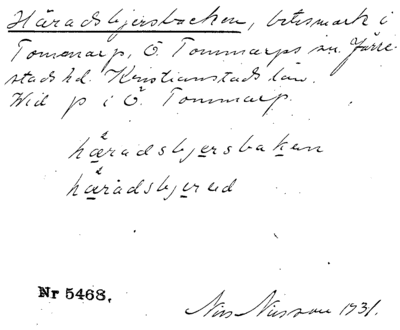 Häradsbjersbacken, betesmark i
Tommarp, Ö. Tommarps sn. Järre-
stads hd. Kristianstads län.
Wid p i Ö. Tommarp.
häradsbjersbakan
häradsbjered
Nr 5468.
Nils Nilsson 1931.